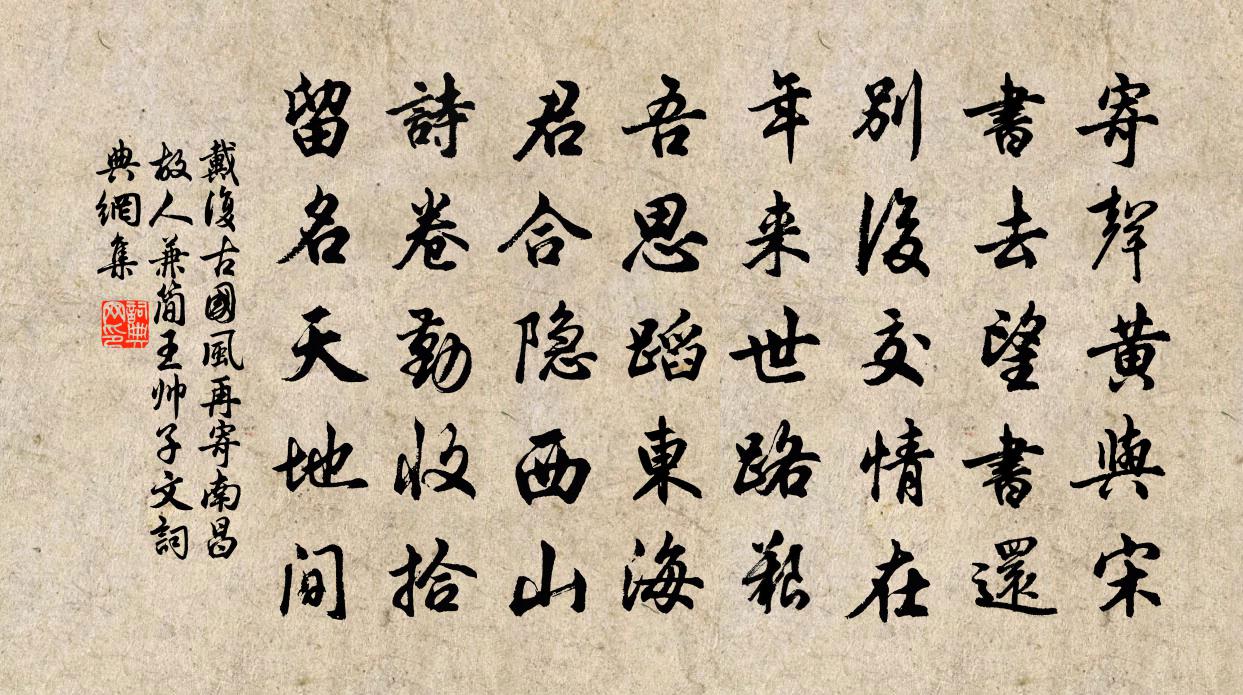 寄聲黄與宋
書去望書還
别後交情在
年来世路艱
吾思蹈東海
君合隐西山
詩卷勤收拾
留名天地间
戴復古國風再寄南昌
故人兼简王帅子文詞
典網集
詞典
网印